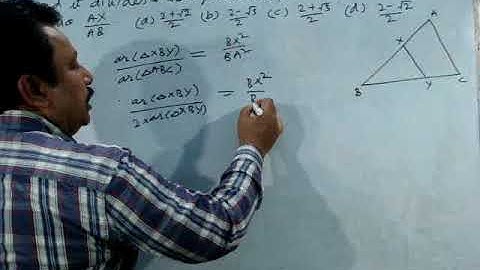 it divides
AX/AB (a) 2+√2/2 (b) 2-√3/2 (c) 2+√3/2 (d) 2-√2/2
ar(ΔXBY)/ar(ΔABC) = BX²/BA²
ar(ΔXBY)/2×ar(ΔXBY) = BX²/B
A
X
B
Y
C